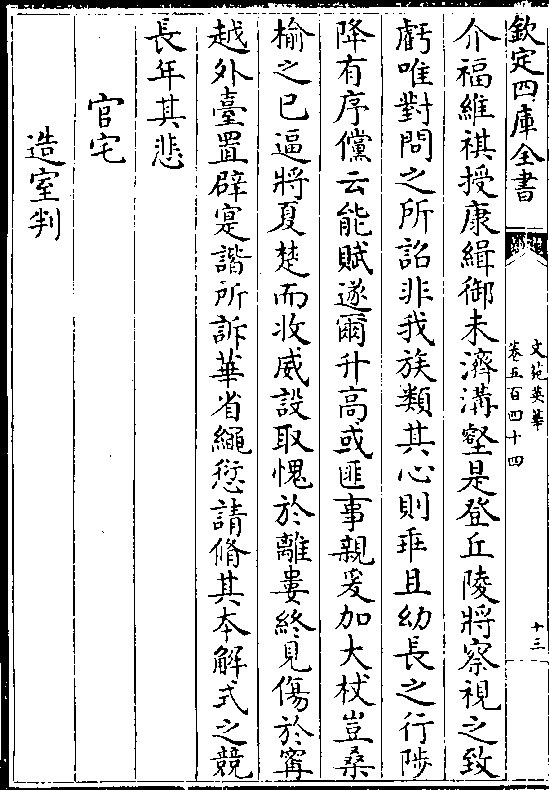 欽定四庫全書
文苑英華
卷五百四十四
十三
介福維祺授康緝御未濟溝壑是登丘陵將察視之致
虧唯對問之所詔非我族類其心則乖且幼長之行陟
降有序儻云能賦遂爾升高或匪事親爰加大杖豈桑
榆之已逼將夏楚而收威設取愧於離婁終見傷於寗
越外臺置辟寔諧所訴華省繩愆請脩其本解式之競
長年其悲
官宅
造室判